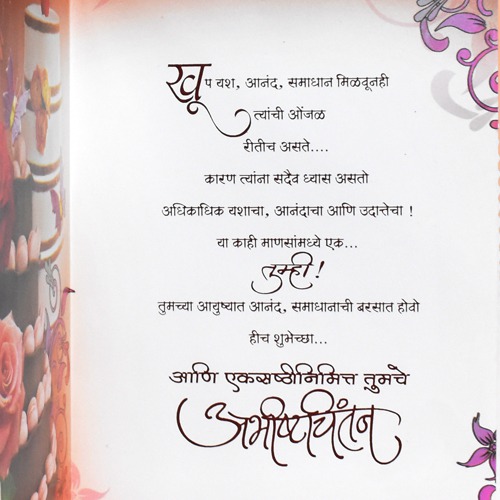 खूप यश, आनंद, समाधान मिळवूनही
त्यांची ओंजळ
रीतीच असते....
कारण त्यांना सदैव ध्यास असतो
अधिकाधिक यशाचा, आनंदाचा आणि उदात्तेचा !
या काही माणसांमध्ये एक...
तुम्ही!
तुमच्या आयुष्यात आनंद, समाधानाची बरसात होवो
हीच शुभेच्छा...
आणि एकसष्ठीनिमित्त तुमचे
अभीष्टचिंतन